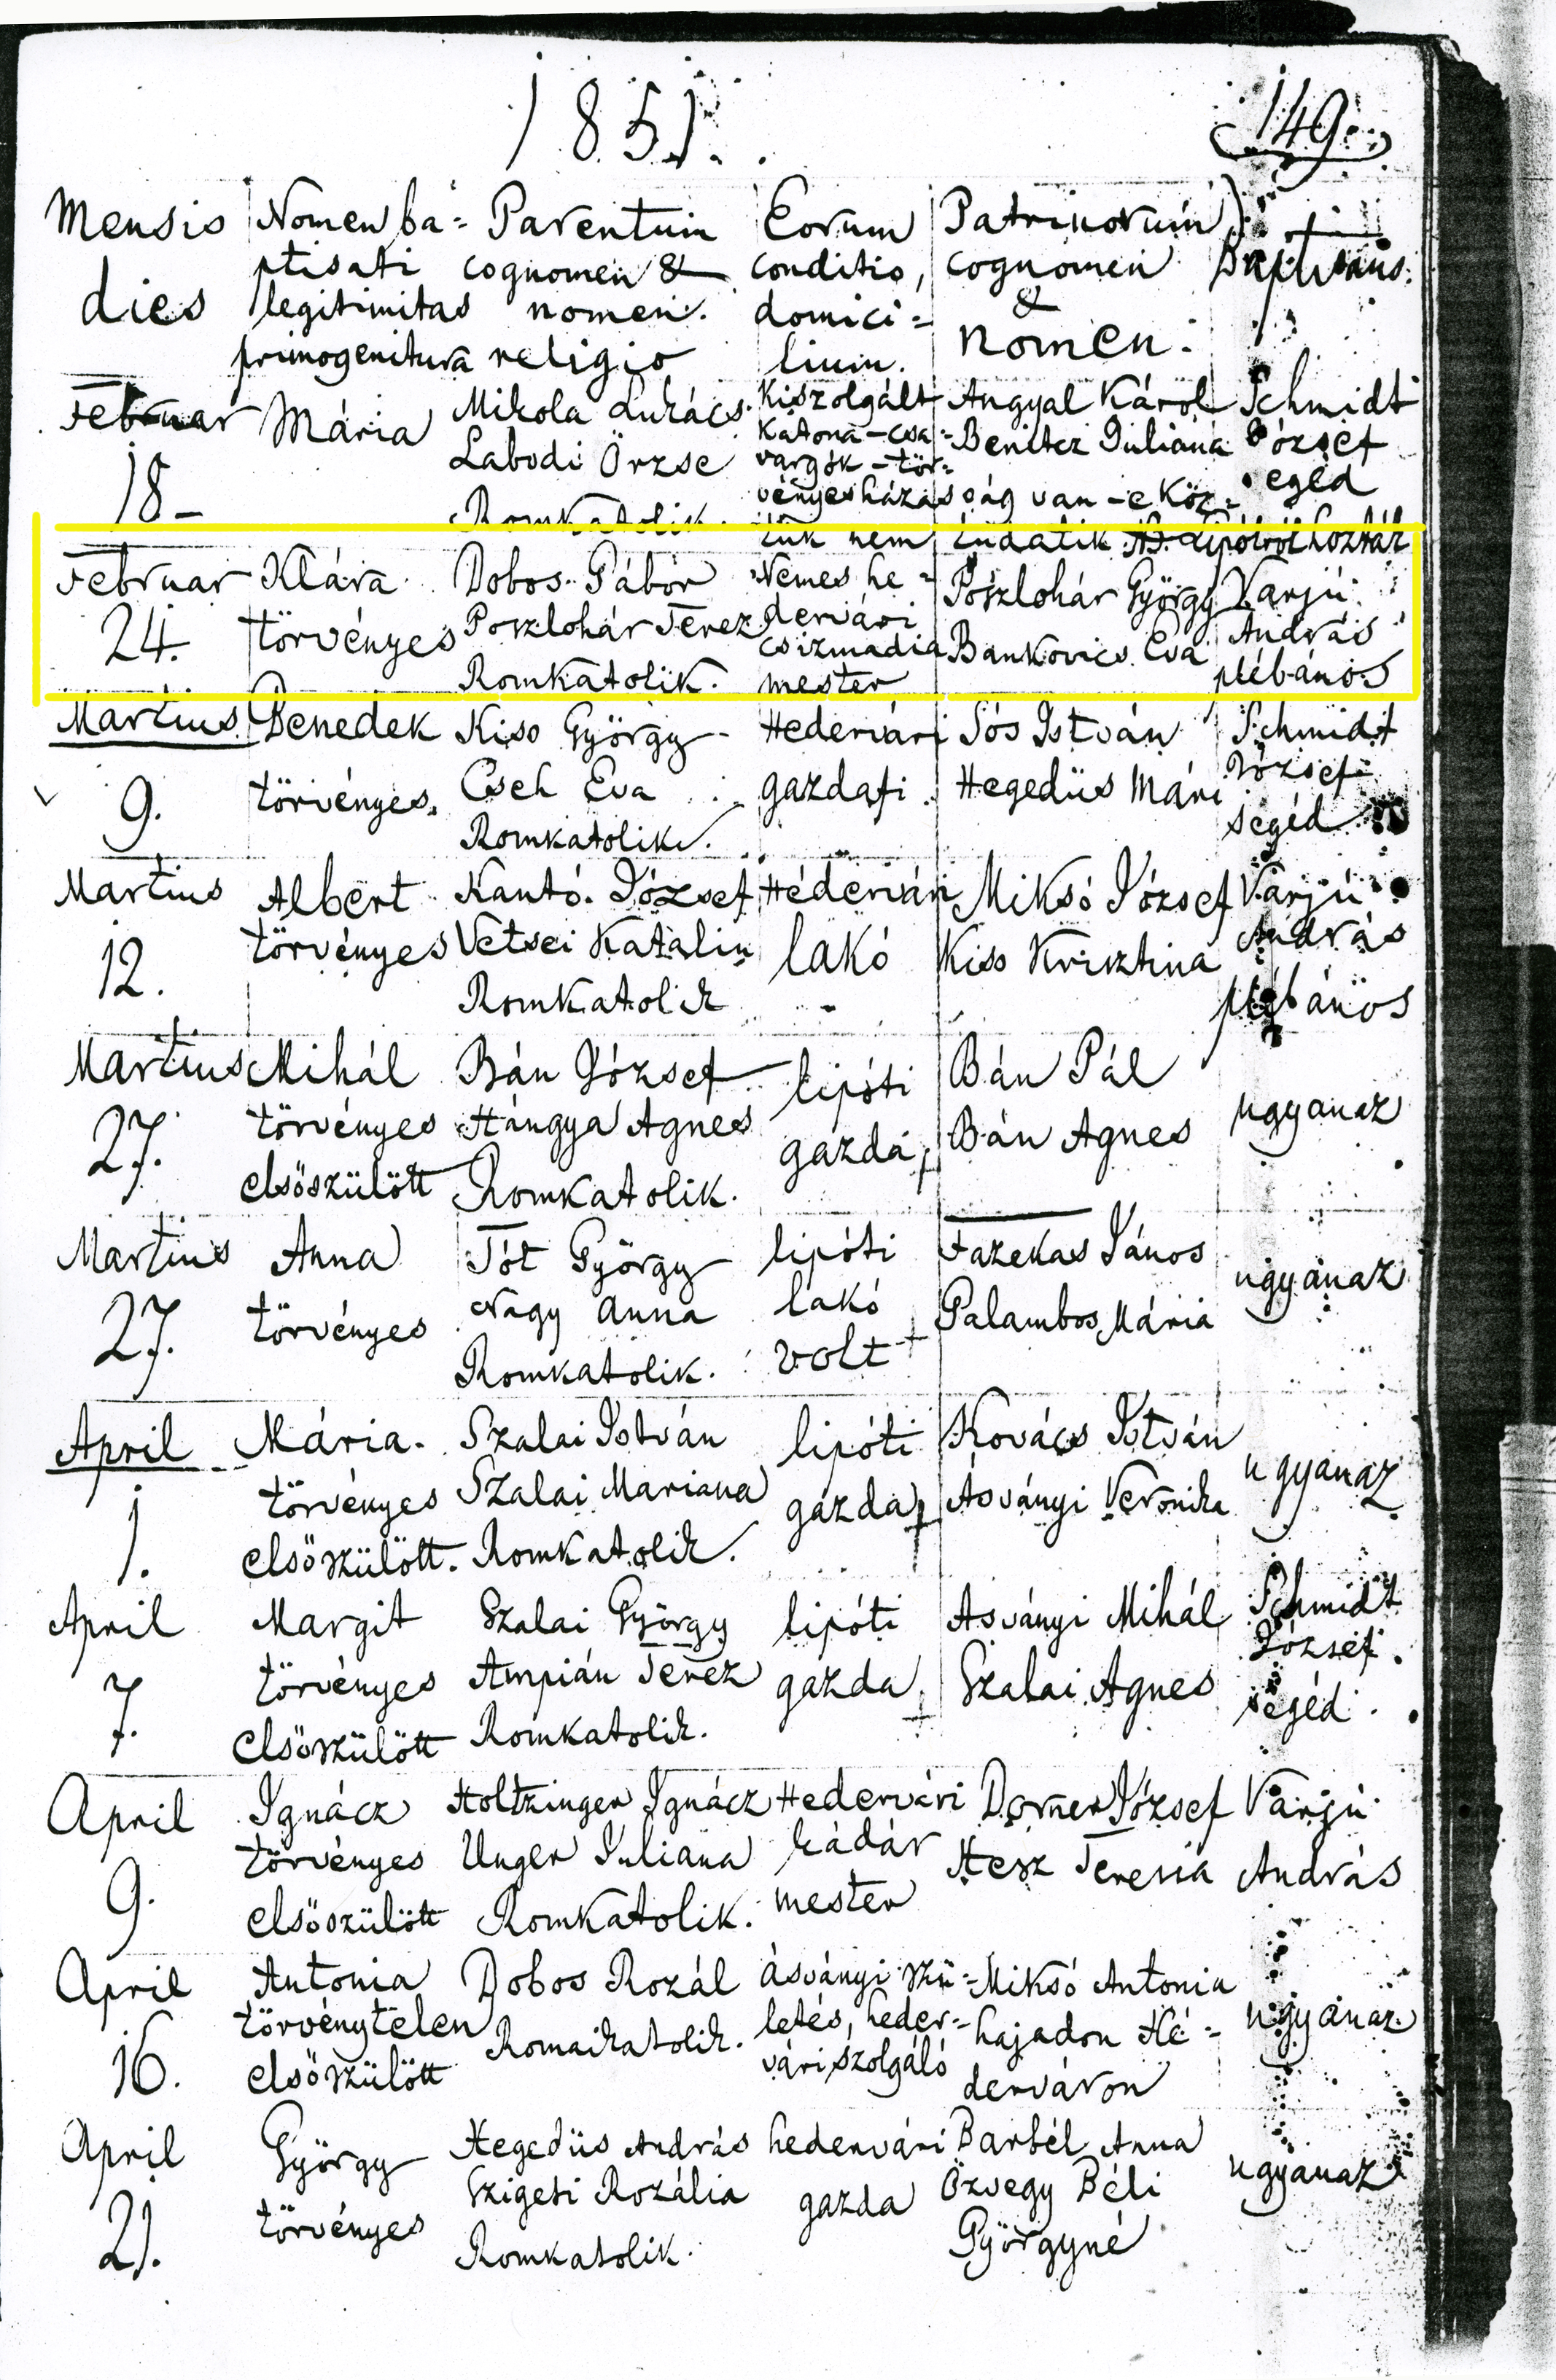 1851.
149.
Mensis
dies
Nomen ba=
ptisati
legitimitas
primogenitura
Parentum
cognomen &
nomen.
religio
Eorum
conditio,
domici=
lium.
Patrinorum
cognomen
&
nomen.
Februar
18-
Mária
Mikola Lukács
Labodi Örzse
Romkatolik.
Kiszolgált
katona-csa=
vargók-tör=
vényes házasság van-e köz=
tük nem tudatik
Angyal Károl
Benitcz Juliána
Schmidt
József
segéd
Februar
24.
Klára
törvényes
Dobos Gábor
Poszlohár Terez
Romkatolik.
Nemes he=
dervári
csizmadia
mester
Poszlohár György
Bankovics Eva
Varjú
András
plébános
Martius
9.
Benedek
törvényes.
Kiss György
Cseh Eva
Romkatolik.
Hedervári
gazdafi
Sós István
Hegedüs Mári
Schmidt
József
segéd
Martius
12.
Albert
törvényes
Kantó József
Vetsei Katalin
Romkatolik
Hédervári
lakó
Miksó József
Kiss Krisztina
Varjú
András
plébános
Martius
27.
Mihál
törvényes
elsöszülött
Bán József
Hángya Agnes
Romkatolik.
lipóti
gazda
Bán Pál
Bán Agnes
ugyanaz
Martius
27.
Anna
törvényes
Tót György
Nagy Anna
Romkatolik.
lipóti
lakó
volt
Fazekas János
Palambos Mária
ugyanaz
April
1.
Mária.
törvényes
elsöszülött.
Szalai István
Szalai Mariana
Romkatolik.
lipóti
gazda
Kovács István
Ásványi Veronika
ugyanaz
April
7.
Margit
törvényes
elsöszülött
Szalai György
Ampián Terez
Romkatolik.
lipóti
gazda
Asványi Mihál
Szalai Agnes
Schmidt
József
segéd
April
9.
Ignácz
törvényes
elsöszülött
Holtzinger Ignácz
Unger Juliana
Romkatolik.
Hedervári
kádár
mester
Dorner József
Hesz Teresia
Varjú
András
April
16.
Antonia
törvénytelen
elsöszülött
Dobos Rozál
Romaikatolik.
ásványi szü=
letés, heder=
vári szolgáló
Miksó Antonia
hajadon Hé=
derváron
ugyanaz
April
21.
György
törvényes
Hegedüs András
Szigeti Rozália
Romkatolik.
hedervári
gazda
Barbél Anna
Özvegy Béli
Györgyné
ugyanaz